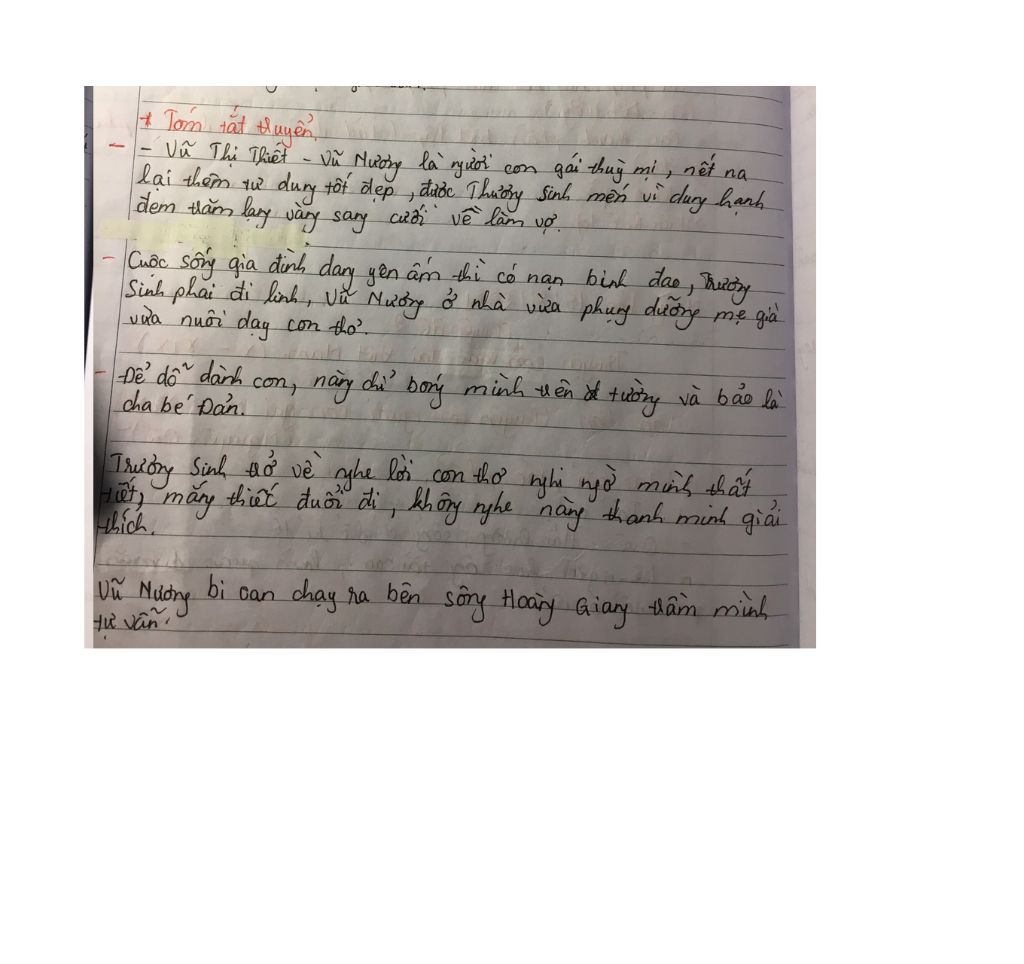 * Tóm tắt truyện
- Vũ Thị Thiết - Vũ Nương là người con gái thuỳ mị, nết na
lại thêm tư dung tốt đẹp, được Thường Sinh mến vì dung hạnh
đem trăm lạng vàng sang cưới về làm vợ.
- Cuộc sống gia đình đang yên ấm thì có nạn binh đao, Trương
Sinh phải đi lính, Vũ Nương ở nhà vừa phụng dưỡng mẹ già
vừa nuôi dạy con thơ.
- Để dỗ dành con, nàng chỉ bóng mình trên tường và bảo là
cha bé Đản.
Trương Sinh trở về nghe lời con thơ nghi ngờ mình thất
tiết, mắng thiếc đuổi đi, không nghe nàng thanh minh giải
thích.
Vũ Nương bị oan chạy ra bên sông Hoàng Giang trầm mình
tự vẫn.